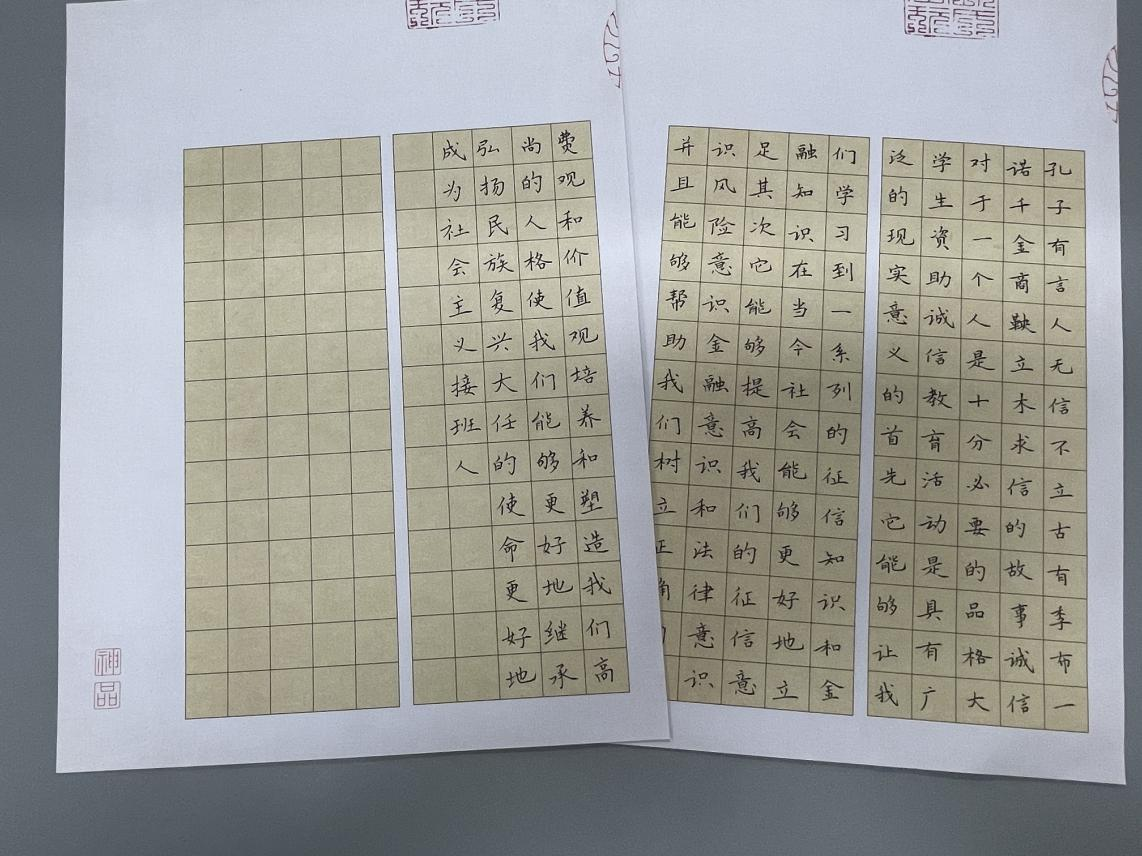 孔子有言人无信不立古有季布一
诺千金商鞅立木求信的故事诚信
对于一个人是十分必要的品格大
学生资助诚信教育活动是具有广
泛的现实意义的首先它能够让我
们学习到一系列的征信知识和金
融知识在当今社会能够更好地立
足其次它能够提高我们的征信意
识风险意识金融意识和法律意识
并且能够帮助我们树立正
费观和价值观培养和塑造我们高
尚的人格使我们能够更好地继承
弘扬民族复兴大任的使命更好地
成为社会主义接班人
神品